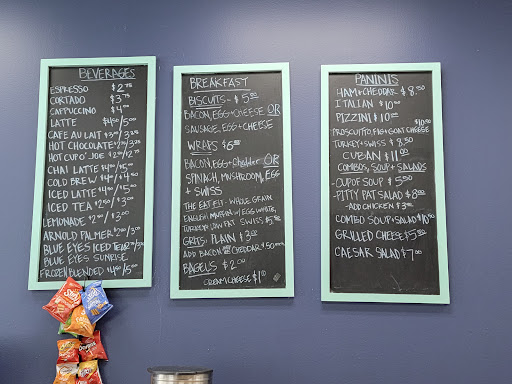 BEVERAGES
ESPRESSO $2.75
CORTADO $3.75
CAPPUCCINO $4.00
LATTE $4.50/5.00
CAFE AU LAIT $3.00/3.25
HOT CHOCOLATE
HOT CUP O' JOE
CHAI LATTE
COLD BREW
ICED LATTE
ICED TEA $2.50/3.00
LEMONADE $2.50/3.00
ARNOLD PALMER
BLUE EYES ICED TEA
BLUE EYES SUNRISE
FROZEN BLENDED $4.50/5.00
BREAKFAST
BISCUITS - $5.50
BACON, EGG + CHEESE OR
SAUSAGE, EGG + CHEESE
WRAPS
BACON, EGG + Cheddar OR
SPINACH, MUSHROOM, EGG
+ SWISS
THE EAT FIT - WHOLE GRAIN
ENGLISH MUFFIN W/ EGG WHITE,
TURKEY + LOW FAT SWISS $5.50
GRITS: PLAIN $3.00
ADD BACON CHEDDAR $.50
BAGELS $2.00
CREAM CHEESE $1.00
PANINIS
HAM + CHEDDAR $8.50
ITALIAN $10.00
PIZZINI $10.00
$10.50
PROSCUITTO, FIG + GOAT CHEESE
TURKEY + SWISS $8.50
CUBAN $11.00
COMBOS, SOUP + SALADS
- CUP OF SOUP $5.50
- PITTY PAT SALAD $8.00
- ADD CHICKEN $3.00
COMBO SOUP + SALAD
GRILLED CHEESE $5.50
CAESAR SALAD $7.00